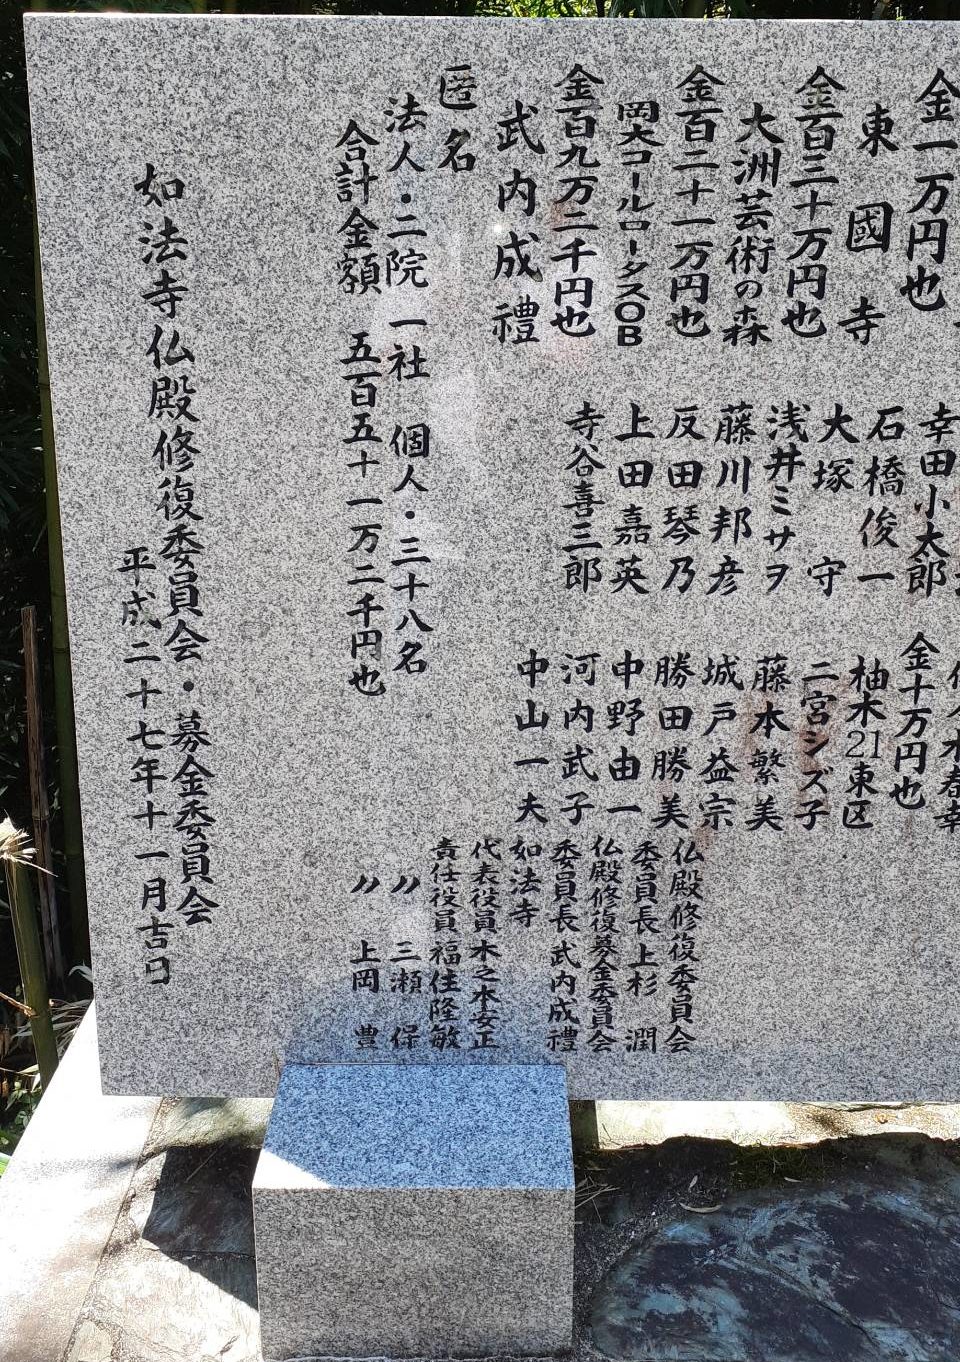 金一万円也
東國寺
金百三十万円也
大洲芸術の森
金百二十一万円也
岡大コールロータスOB
金百九万二千円也
武内成禮
匿名
法人・二院 一社 個人・三十八名
合計金額 五百五十一万二千円也
幸田小太郎
石橋俊一
大塚 守
浅井ミサヲ
藤川邦彦
反田琴乃
上田嘉英
寺谷喜三郎
金十万円也
柚木21東区
二宮シズ子
藤本繁美
城戸益宗
勝田勝美
中野由一
河内武子
中山一夫
仏殿修復委員会
委員長上杉 潤
仏殿修復募金委員会
委員長武内成禮
如法寺
代表役員木之本安正
責任役員福住隆敏
〃 三瀬 保
〃 上岡 豊
如法寺仏殿修復委員会・募金委員会
平成二十七年十一月吉日